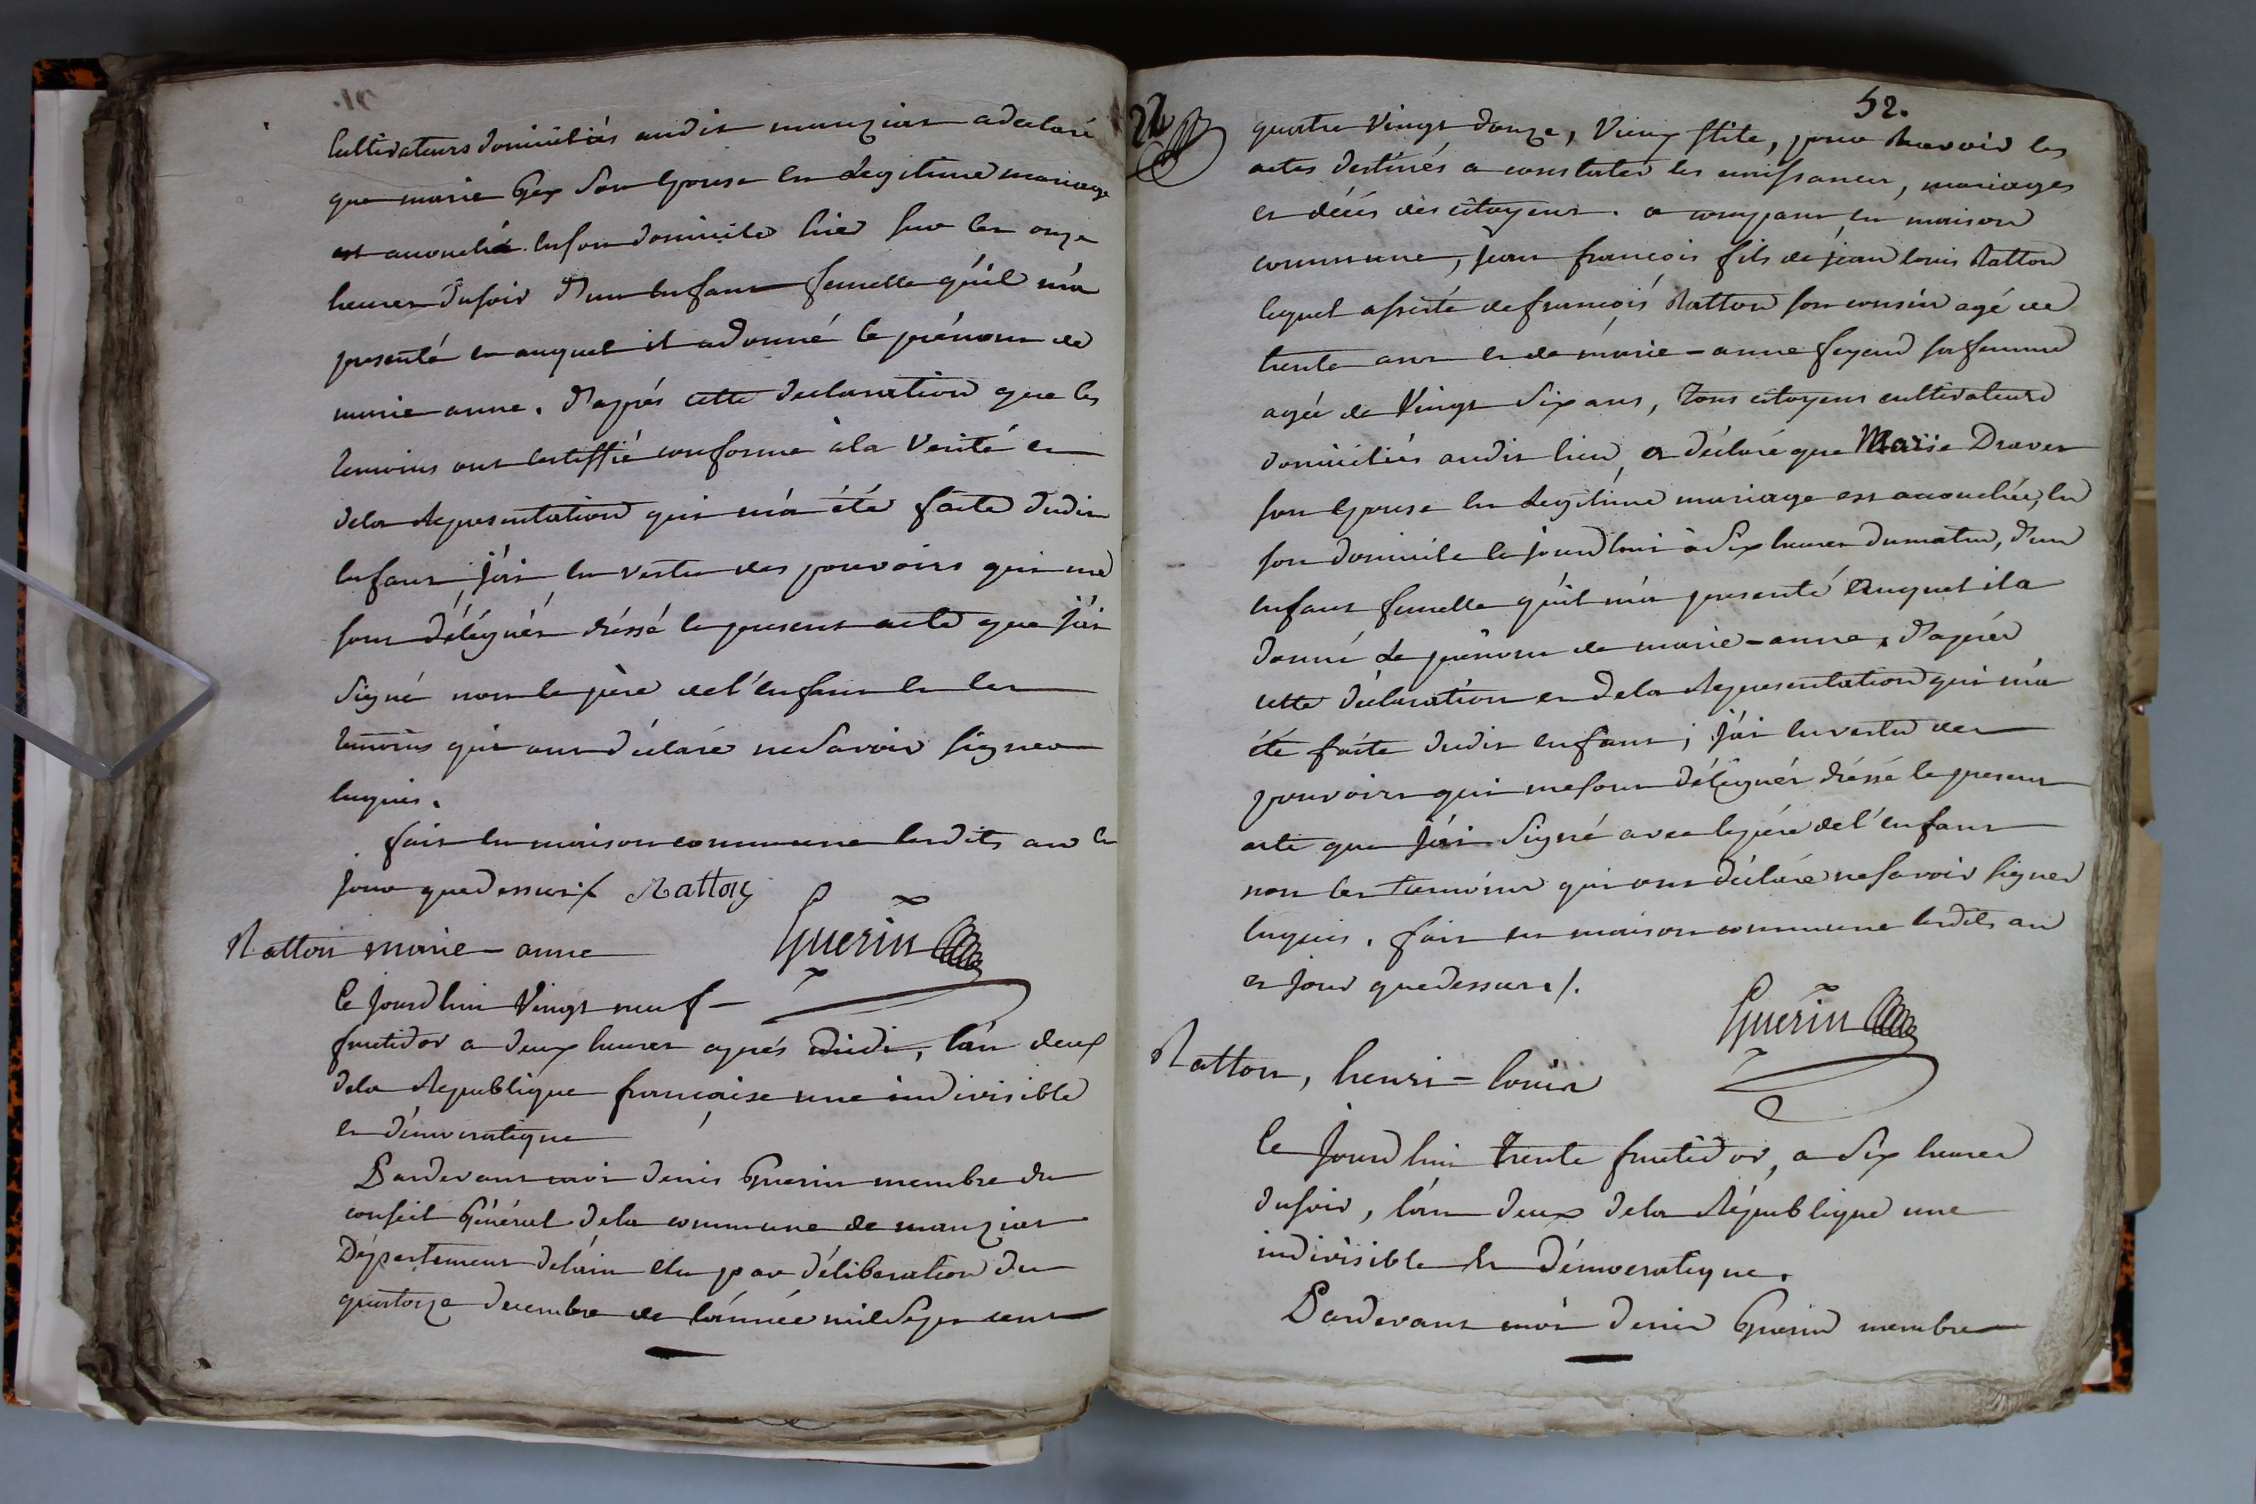 Cultivateurs domiciliés audit manziat a declaré
que marie Gex son Epouse en Legitime mariage
est accouchée en son domicile hier sur les onze
heures du soir d'un enfant femelle qu'il m'a
presenté et auquel il a donné le prénom de
marie anne. d'après cette declaration que les
temoins ont certiffié conforme à la Verité et
de la Representation qui m'a été faite dudit
enfant, j'ai en vertu des pouvoirs qui me
sont délégués dréssé le present acte que j'ai
Signé non le père de l'enfant et les
temoins qui ont déclaré ne Savoir signer
enquis.
fait en maison commune lesdits an et
jour que dessus ./. Ratton
Guerin
Ratton marie-anne
Ce Jourd'hui Vingt neuf
fructidor a deux heures après midi, l'an deux
de la Republique française une indivisible
et démocratique
Pardevant moi denis Guerin membre du
conseil Général de la commune de manziat
Département de l'ain élu par déliberation du
quatorze decembre de l'année mil Sept cent
22
52.
quatre Vingt douze, Vieux stile, pour Recevoir les
actes destinés a constater les naissances, mariages
et décés des citoyens. a comparu en maison
commune, jean françois fils de jean louis Ratton
lequel assisté de françois Ratton son cousin agé de
trente ans et de marie-anne feyeud sa femme
agée de Vingt Six ans, Tous citoyens cultivateurs
domiciliés audit lieu a déclaré que Marie Draver
son Epouse en Legitime mariage est accouchée, en
son domicile le jourd'hui à Six heures du matin, d'un
enfant femelle qu'il m'a presenté Auquel il a
donné Le prénom de marie-anne, d'après
cette déclaration et de la Representation qui m'a
été faite dudit enfant; j'ai en vertu des
pouvoirs qui me sont délégués dréssé le present
acte que j'ai Signé avec le pére de l'enfant
non les temoins qui ont déclaré ne savoir signer
enquis. fait en maison commune lesdits an
et jour que dessus ./.
Guerin
Ratton, henri-louis
Ce Jourd'hui trente fructidor, a Six heures
du soir, l'an deux de la République une
indivisible et Démocratique.
Pardevant moi denis Guerin membre